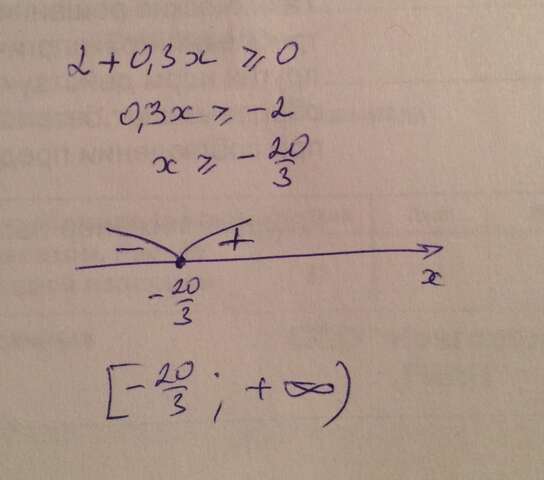 2 + 0,3x ⩾ 0
0,3x ⩾ -2
x ⩾ - 20/3
- +
- 20/3
x
[- 20/3 ; + ∞)